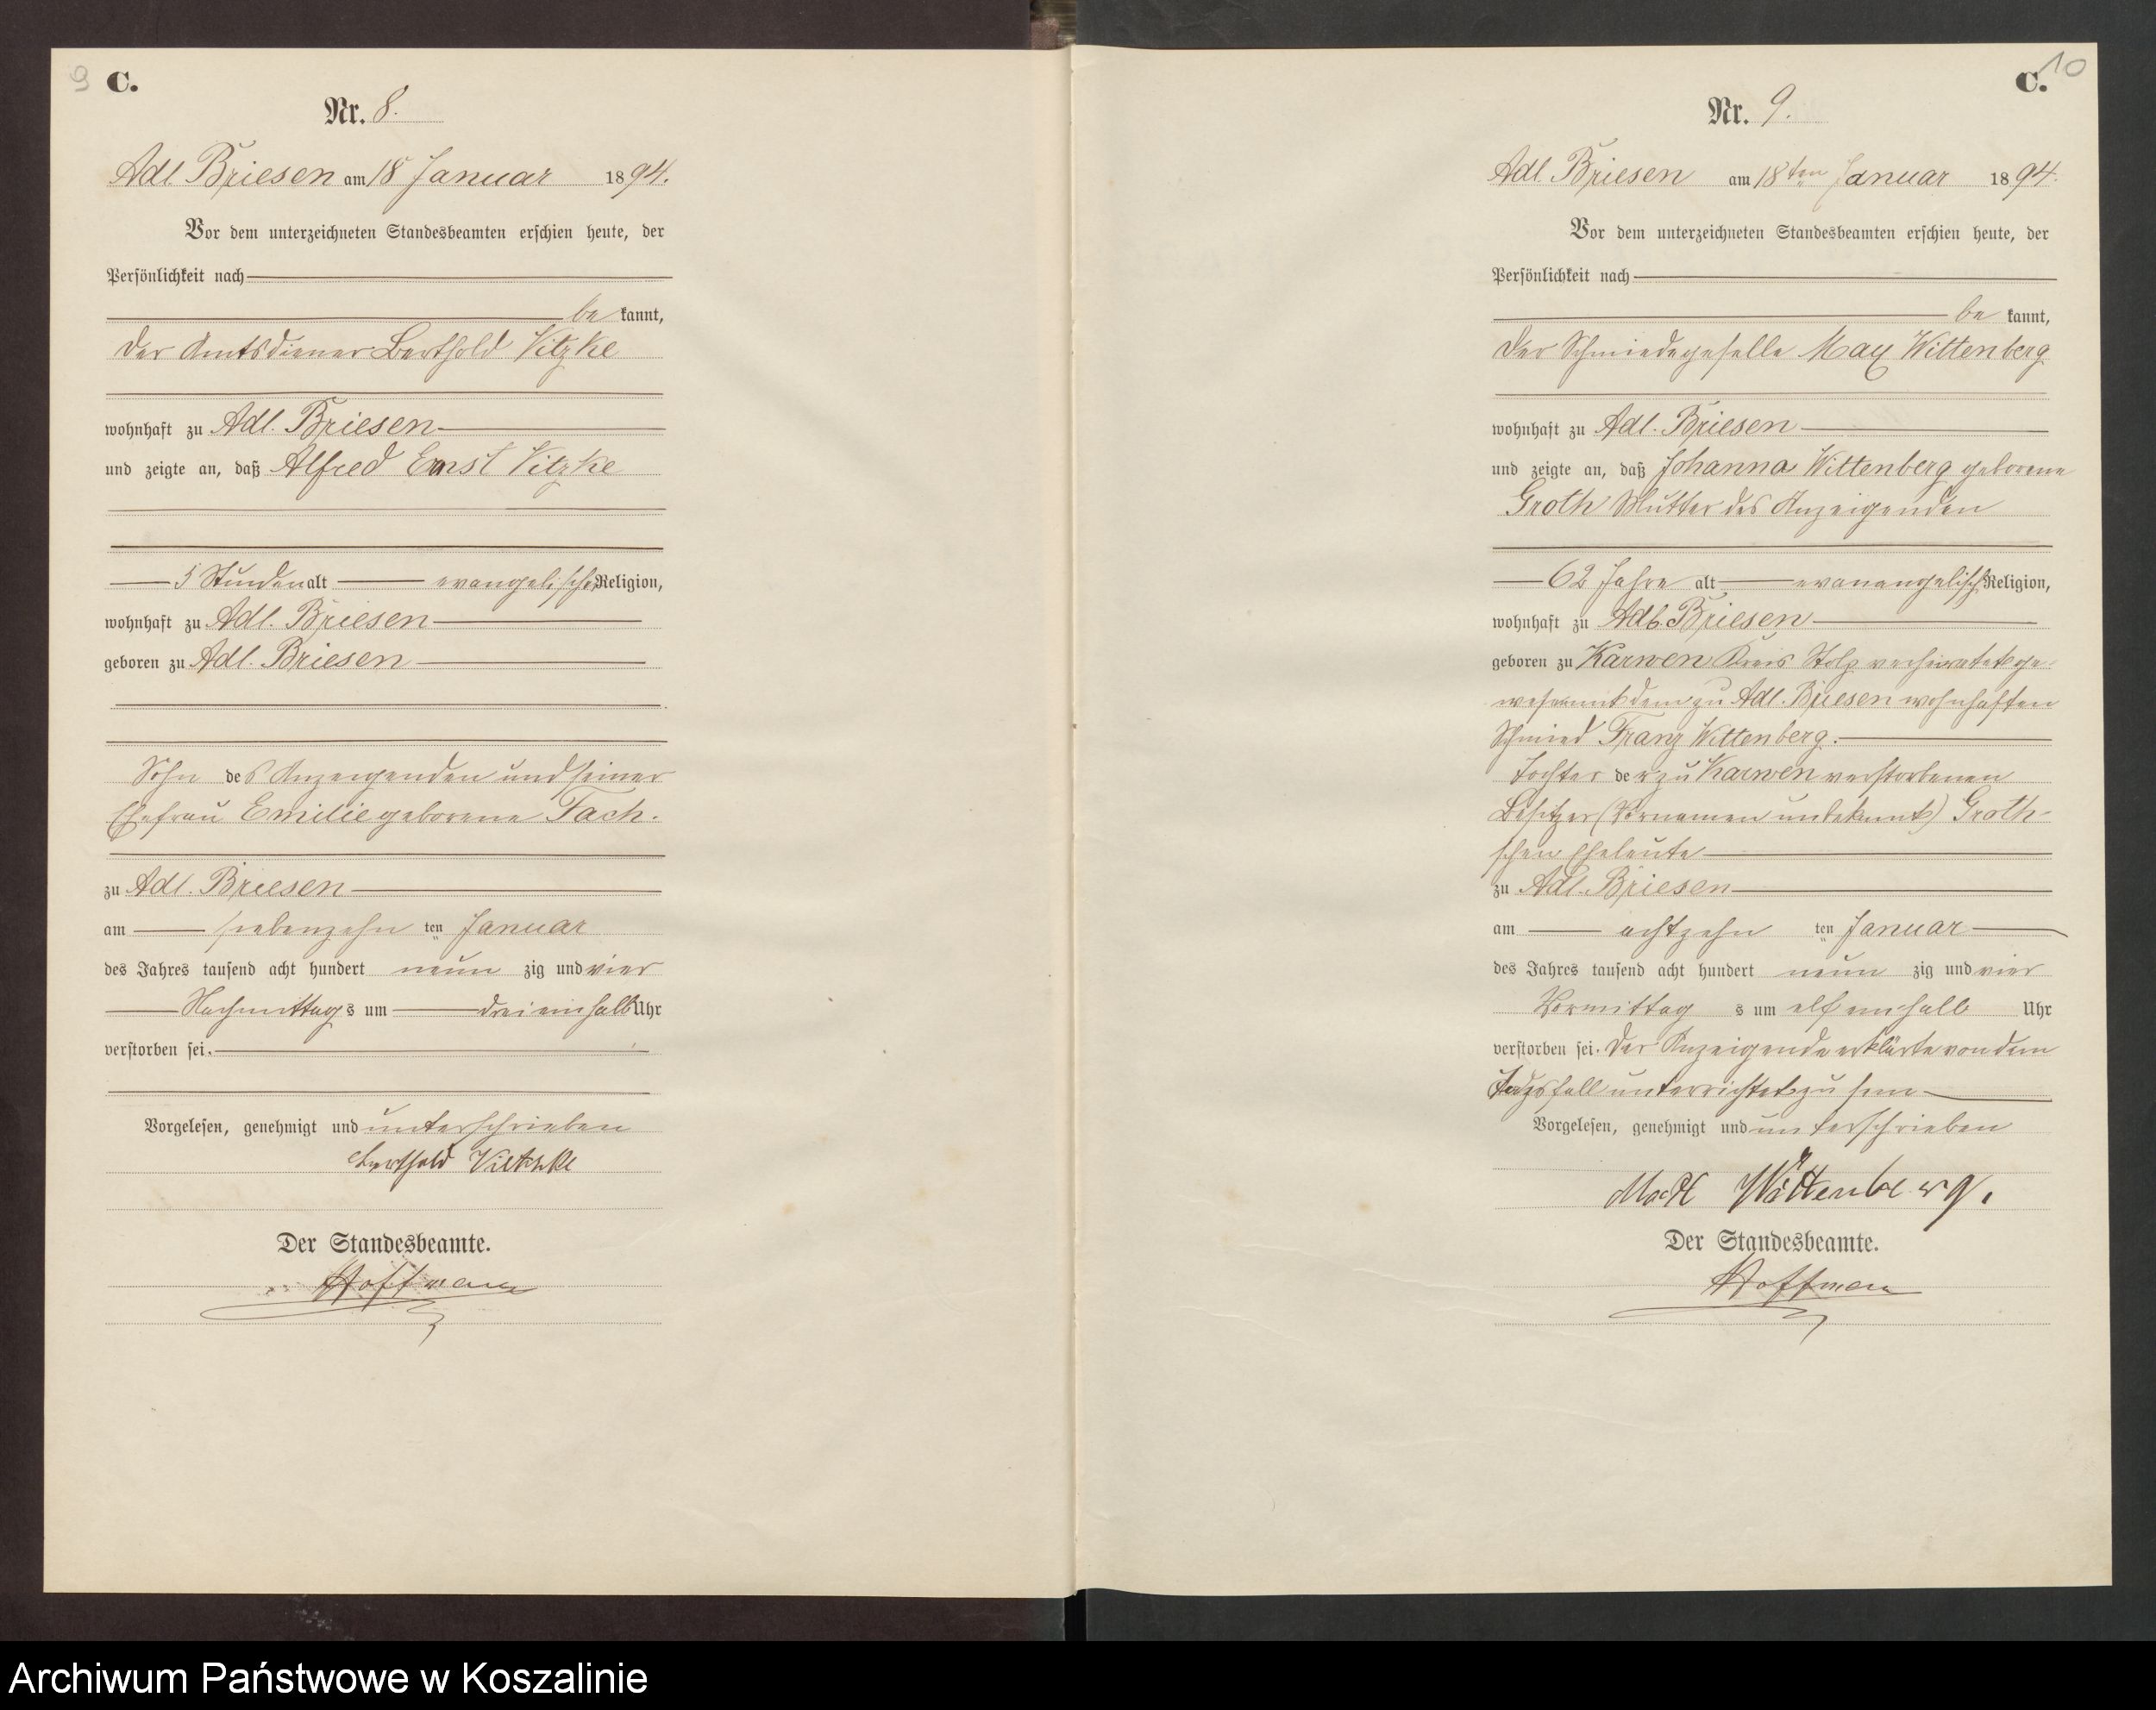 9 C.
Nr. 8.
Adl. Briesen am 18 Januar 1894.
Vor dem unterzeichneten Standesbeamten erschien heute, der
Persönlichkeit nach
be kannt,
der Amtsdiener Berthold Vitzke
wohnhaft zu Adl. Briesen
und zeigte an, daß Alfred Ernst Vitzke
5 Stunden alt evangelischer Religion,
wohnhaft zu Adl. Briesen
geboren zu Adl. Briesen
Sohn des Anzeigenden und seiner
Ehefrau Emilie geborene Fach.
zu Adl. Briesen
am siebenzehn ten Januar
des Jahres tausend acht hundert neun zig und vier
Nachmittags um dreieinhalb Uhr
verstorben sei.
Vorgelesen, genehmigt und unterschrieben
Berthold Vietzke
Der Standesbeamte.
Hoffmann
C. 10
Nr. 9.
Adl. Briesen am 18ten Januar 1894.
Vor dem unterzeichneten Standesbeamten erschien heute, der
Persönlichkeit nach
be kannt,
der Schmiedegeselle Max Wittenberg
wohnhaft zu Adl. Briesen
und zeigte an, daß Johanna Wittenberg geborene
Groth Mutter des Anzeigenden
62 Jahre alt evanangelisch Religion,
wohnhaft zu Adl. Briesen
geboren zu Karwen Kreis Stolp verheiratet ge-
wesen mit dem zu Adl. Briesen wohnhaften
Schmied Franz Wittenberg.
Tochter der zu Karwen verstorbenen
Besitzer (Vornamen unbekannt) Groth-
schen Eheleute
zu Adl. Briesen
am achtzehn ten Januar
des Jahres tausend acht hundert neun zig und vier
Vormittag s um elfeinhalb Uhr
verstorben sei. Der Anzeigende erklärte von dem
Todesfall unterrichtet zu sein
Vorgelesen, genehmigt und unterschrieben
Max Wittenberg.
Der Standesbeamte.
Hoffmann
Archiwum Państwowe w Koszalinie